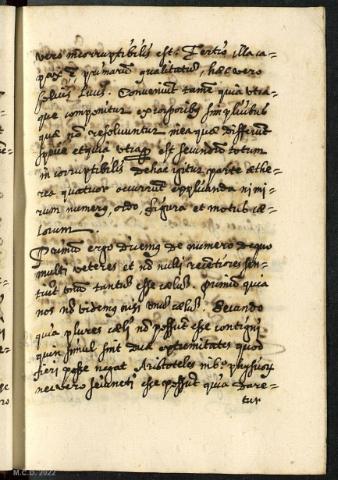 vero incorruptibilis est. Tertio illa ca-
pax e primarũ qualitatũ, hæc vero
solius lucis. Conveniũt tamẽ quia utra-
que componitur ex corporibus simplicibus
quæ nõ resolvuntur in ea quæ differũt
spẽ et quia utraq est secundũ totum
incorruptibilis. De hac igitur parte æthe-
rea quatuor occurrũt explicanda nimi-
rum numero, ordo, figura et motus cæ-
lorum.
Primũ ergo dicemq de numero de quo
multi veteres et nõ nulli recẽtiores sen-
tiũt unũ tantũ esse cælũ. Primũ quia
nos nõ videmq nisi unũ cælũ. Secundo
quia plures cæli nõ possũt esse contigui
quin simul sint duæ extremitates quod
fieri posse negat Aristoteles in 6. physicorũ
nec vero sejuncti esse possũt quia dare-
tur
M.C.D. 2022